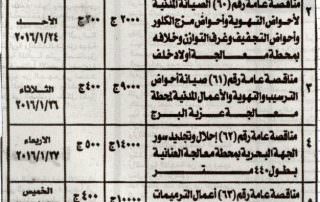 ٢ مناقصة عامة رقم (٦٠) الصيانة المدنية ٢٠٠٠ج ٢٠٠ج الأحد
لأحواض التهوية وأحواض مزج الكلور ٢٠١٦/١/٢٤
وأحواض التجفيف وغرف التوازن وخلافه
بمحطة معالجة أولاد خلف
٣ مناقصة عامة رقم (٦١) صيانة أحواض ٩٠٠٠ج ٤٠٠ج الثلاثاء
الترسيب والتهوية والأعمال المدنية لمحطة ٢٠١٦/١/٢٦
معالجة عزبة البرج
٤ مناقصة عامة رقم (٦٢) إحلال وتجديد سور ١٤٠٠٠ج ٥٠٠ج الاربعاء
الجهة البحرية بمحطة معالجة العنانية ٢٠١٦/١/٢٧
بطول ٤٤٠ متر
مناقصة عامة رقم (٦٣) أعمال الترميمات ١٠٠٠٠ج ٤٠٠ج الخميس